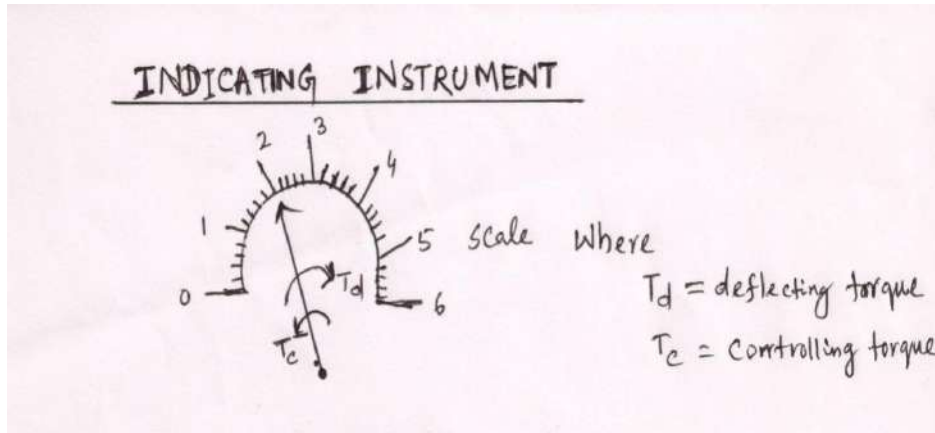 INDICATING INSTRUMENT
3
2
4
1
5 scale where
0
Td
6
Td = deflecting torque
Tc
Tc = Controlling torque